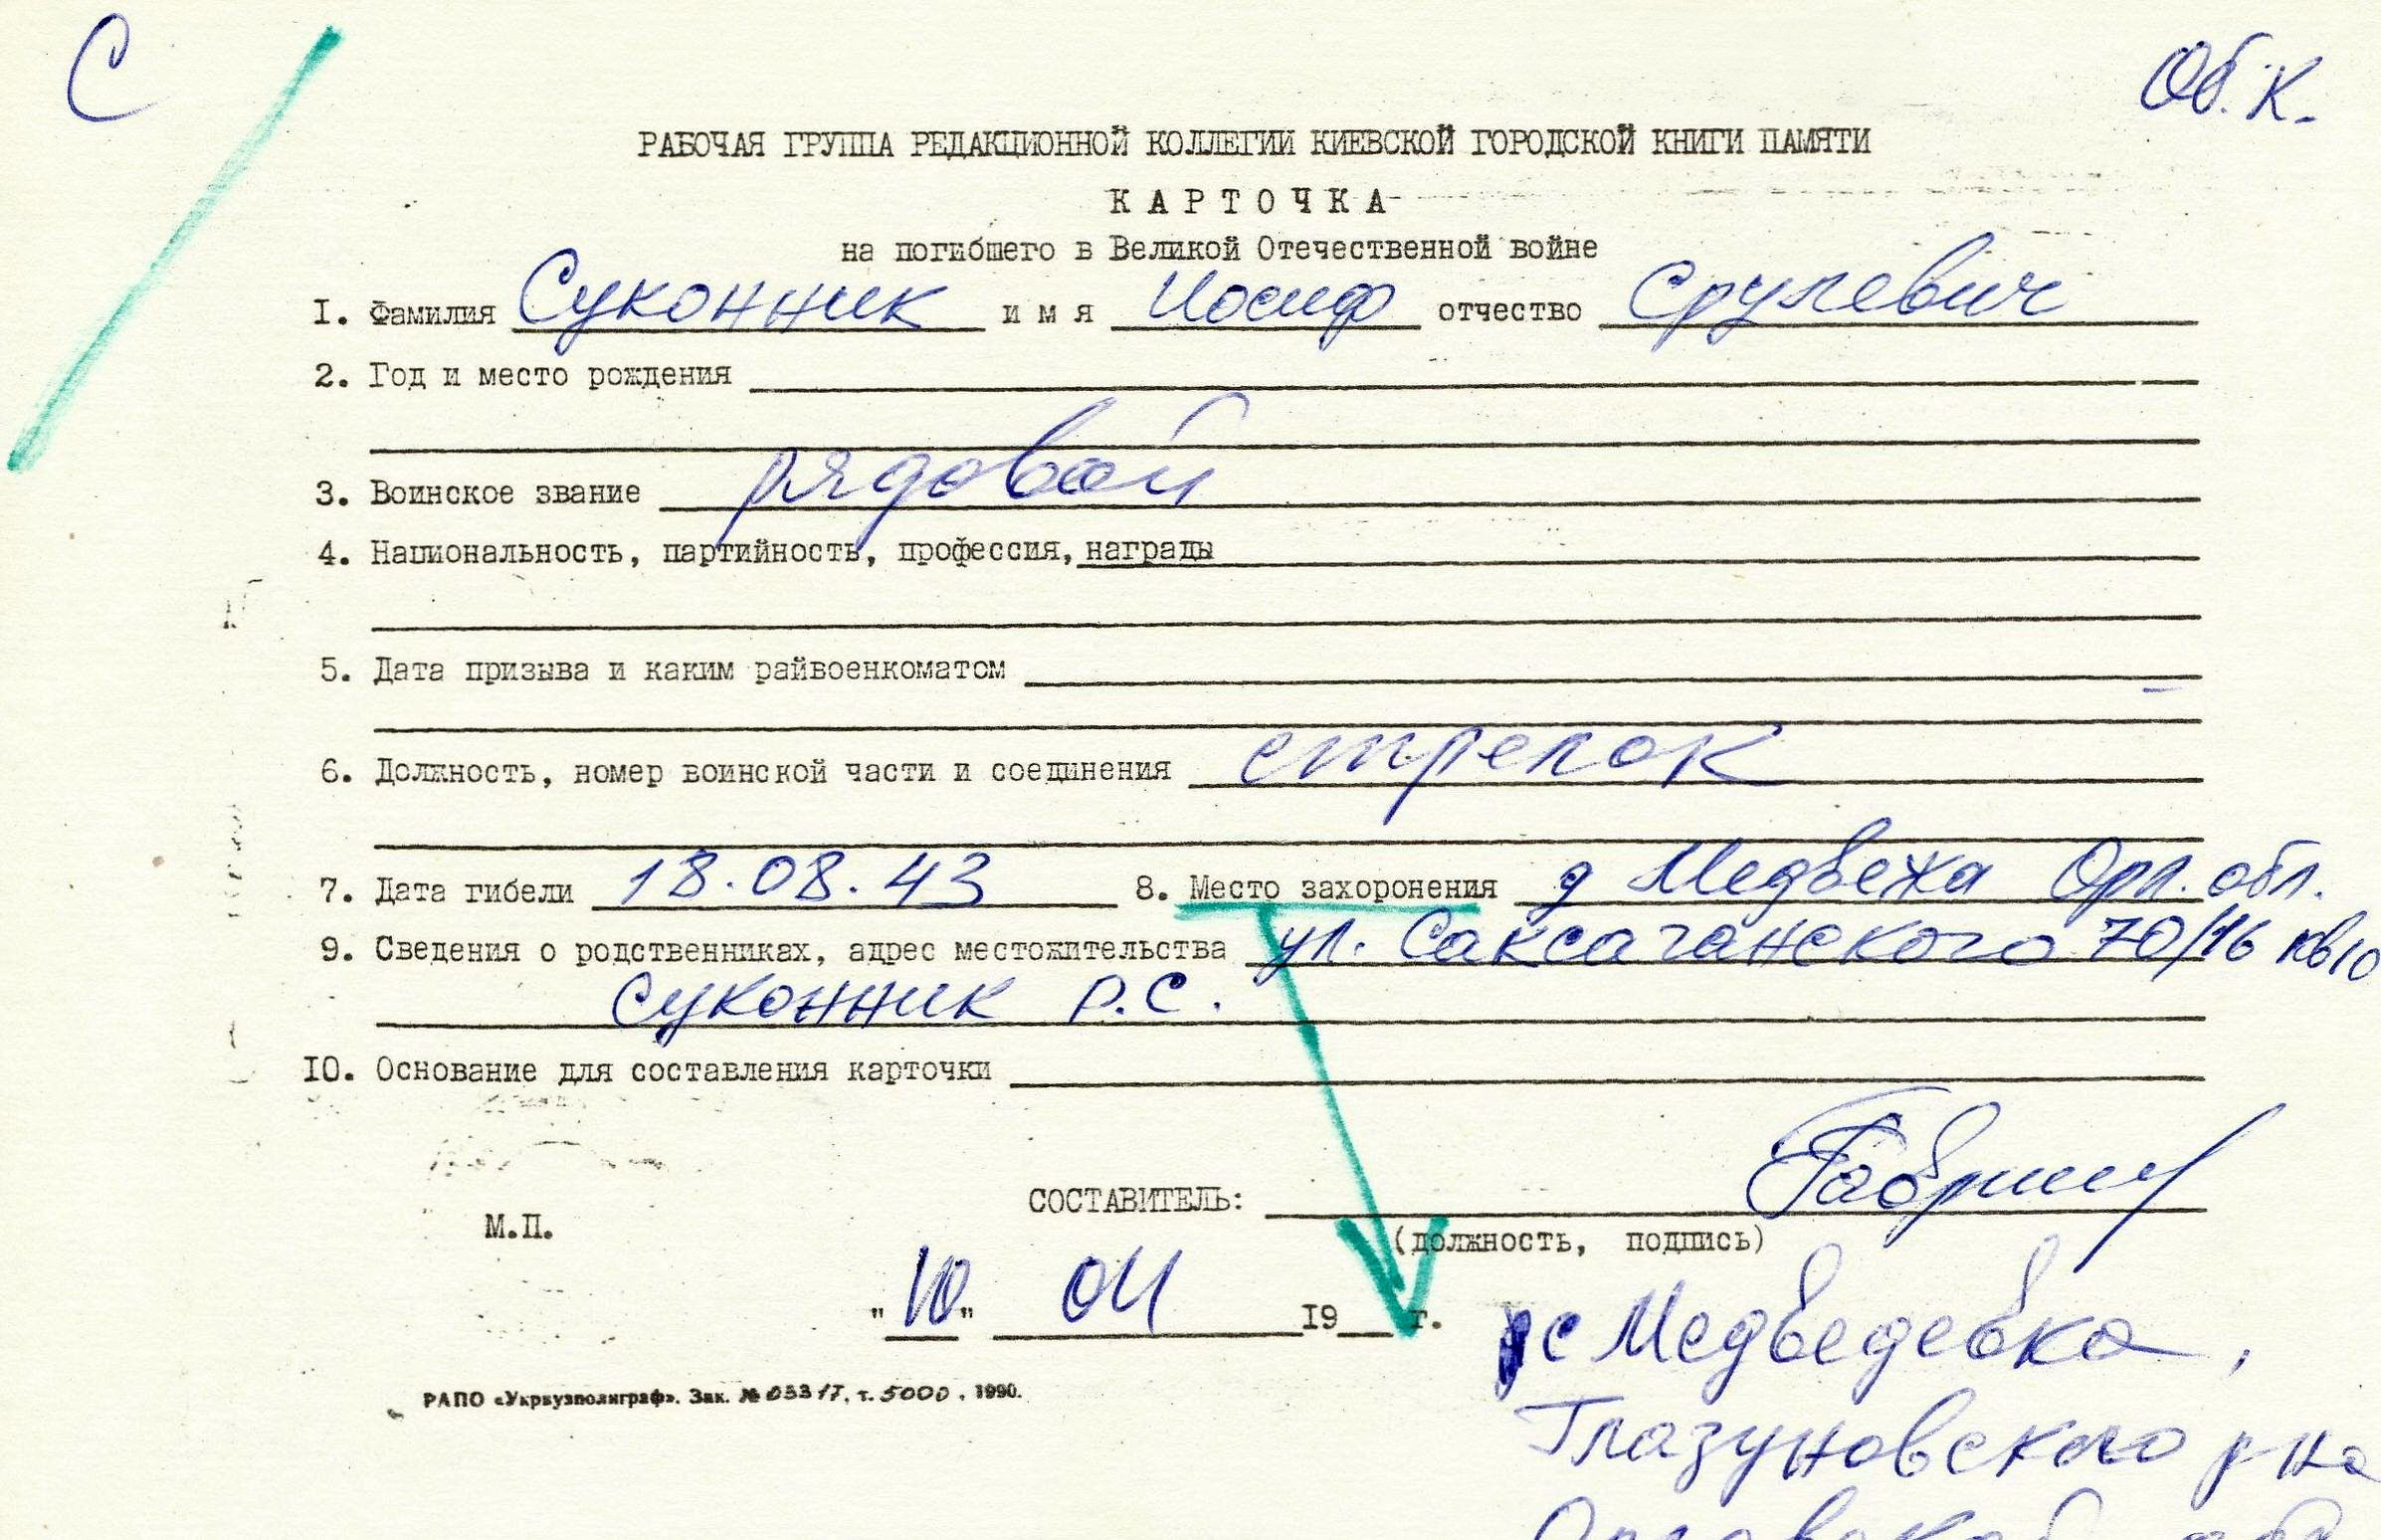 С
Об. К.
РАБОЧАЯ ГРУППА РЕДАКЦИОННОЙ КОЛЛЕГИИ КИЕВСКОЙ ГОРОДСКОЙ КНИГИ ПАМЯТИ
КАРТОЧКА
на погибшего в Великой Отечественной войне
1. Фамилия Суконник имя Иосиф отчество Срулевич
2. Год и место рождения
3. Воинское звание рядовой
4. Национальность, партийность, профессия, награды
5. Дата призыва и каким райвоенкоматом
6. Должность, номер воинской части и соединения стрелок
7. Дата гибели 18.08.43 8. Место захоронения д Медвежа Орл. обл.
9. Сведения о родственниках, адрес местожительства ул. Саксаганского 70/16 кв 10
Суконник Р.С.
10. Основание для составления карточки
СОСТАВИТЕЛЬ:
М.П.
(должность, подпись)
"10" 04 19 г.
с Медведевка,
Глазуновского р-на
Орловской обл
РАПО «Укрвузполиграф». Зак. № 0331Т, т. 5000. 1990.